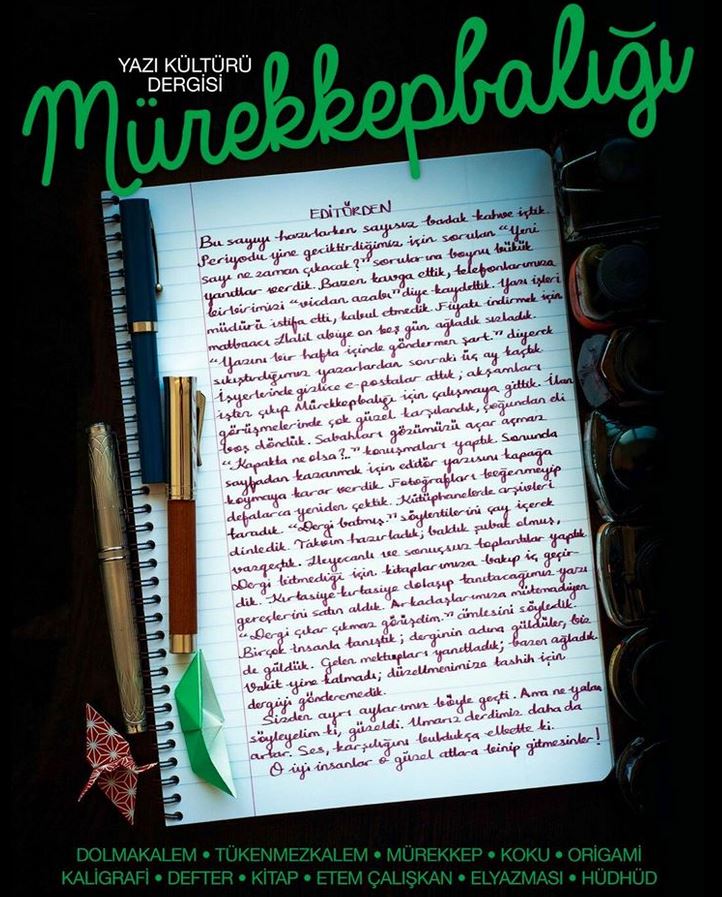 YAZI KÜLTÜRÜ
DERGİSİ
Mürekkepbalığı
EDİTÖRDEN
Bu sayıyı hazırlarken sayısız bardak kahve içtik.
Periyodu yine geciktirdiğimiz için sorulan “Yeni
sayı ne zaman çıkacak?” sorularına boynu bükük
yanıtlar verdik. Bazen kavga ettik, telefonlarımıza
birbirimizi “vicdan azabı” diye kaydettik. Yazı işleri
müdürü istifa etti, kabul etmedik. Fiyatı indirmek için
matbaacı Halil abiye on beş gün ağladık sızladık.
“Yazını bir hafta içinde göndermen şart.” diyerek
sıkıştırdığımız yazarlardan sonraki üç ay kaçtık.
İşyerlerinde gizlice e-postalar attık; akşamları
işten çıkıp Mürekkepbalığı için çalışmaya gittik. İlan
görüşmelerinde çok güzel karşılandık, çoğundan eli
boş döndük. Sabahları gözümüzü açar açmaz
“Kapakta ne olsa?..” konuşmaları yaptık. Sonunda
sayfadan kazanmak için editör yazısını kapağa
koymaya karar verdik. Fotoğrafları beğenmeyip
defalarca yeniden çektik. Kütüphanelerde arşivleri
taradık. “Dergi batmış.” söylentilerini çay içerek
dinledik. Takvim hazırladık; baktık şubat olmuş,
vazgeçtik. Heyecanlı ve sonuçsuz toplantılar yaptık.
Dergi bitmediği için kitaplarımıza bakıp iç geçir-
dik. Kırtasiye kırtasiye dolaşıp tanıtacağımız yazı
gereçlerini satın aldık. Arkadaşlarımıza mütemadiyen
“Dergi çıkar çıkmaz görüşelim.” cümlesini söyledik.
Birçok insanla tanıştık; derginin adına güldüler, biz
de güldük. Gelen mektupları yanıtladık; bazen ağladık.
Vakit yine kalmadı; düzeltmenimize tashih için
dergiyi gönderemedik.
Sizden ayrı aylarımız böyle geçti. Ama ne yalan
söyleyelim ki, güzeldi. Umarız derdimiz daha da
artar. Ses, karşılığını buldukça elbette ki.
O iyi insanlar o güzel atlara binip gitmesinler!
DOLMAKALEM • TÜKENMEZKALEM • MÜREKKEP • KOKU • ORİGAMİ
KALİGRAFİ • DEFTER • KİTAP • ETEM ÇALIŞKAN • ELYAZMASI • HÜDHÜD